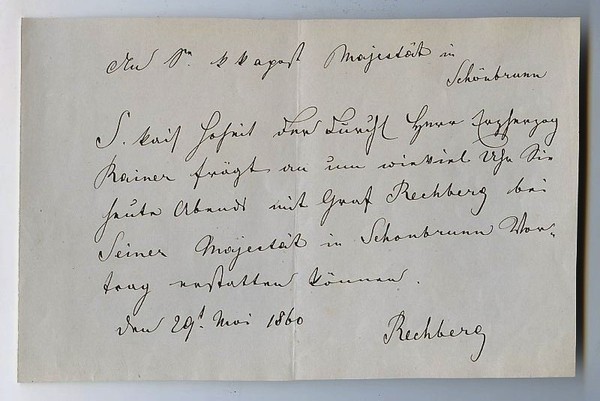 An Sr. k k apost Majestät in
Schönbrunn
S. kais Hoheit der Durchl Herr Erzherzog
Rainer frägt an um wieviel Uhr Sie
heute Abends mit Graf Rechberg bei
Seiner Majestät in Schönbrunn Vor-
trag erstatten können.
den 29t. Mai 1860
Rechberg